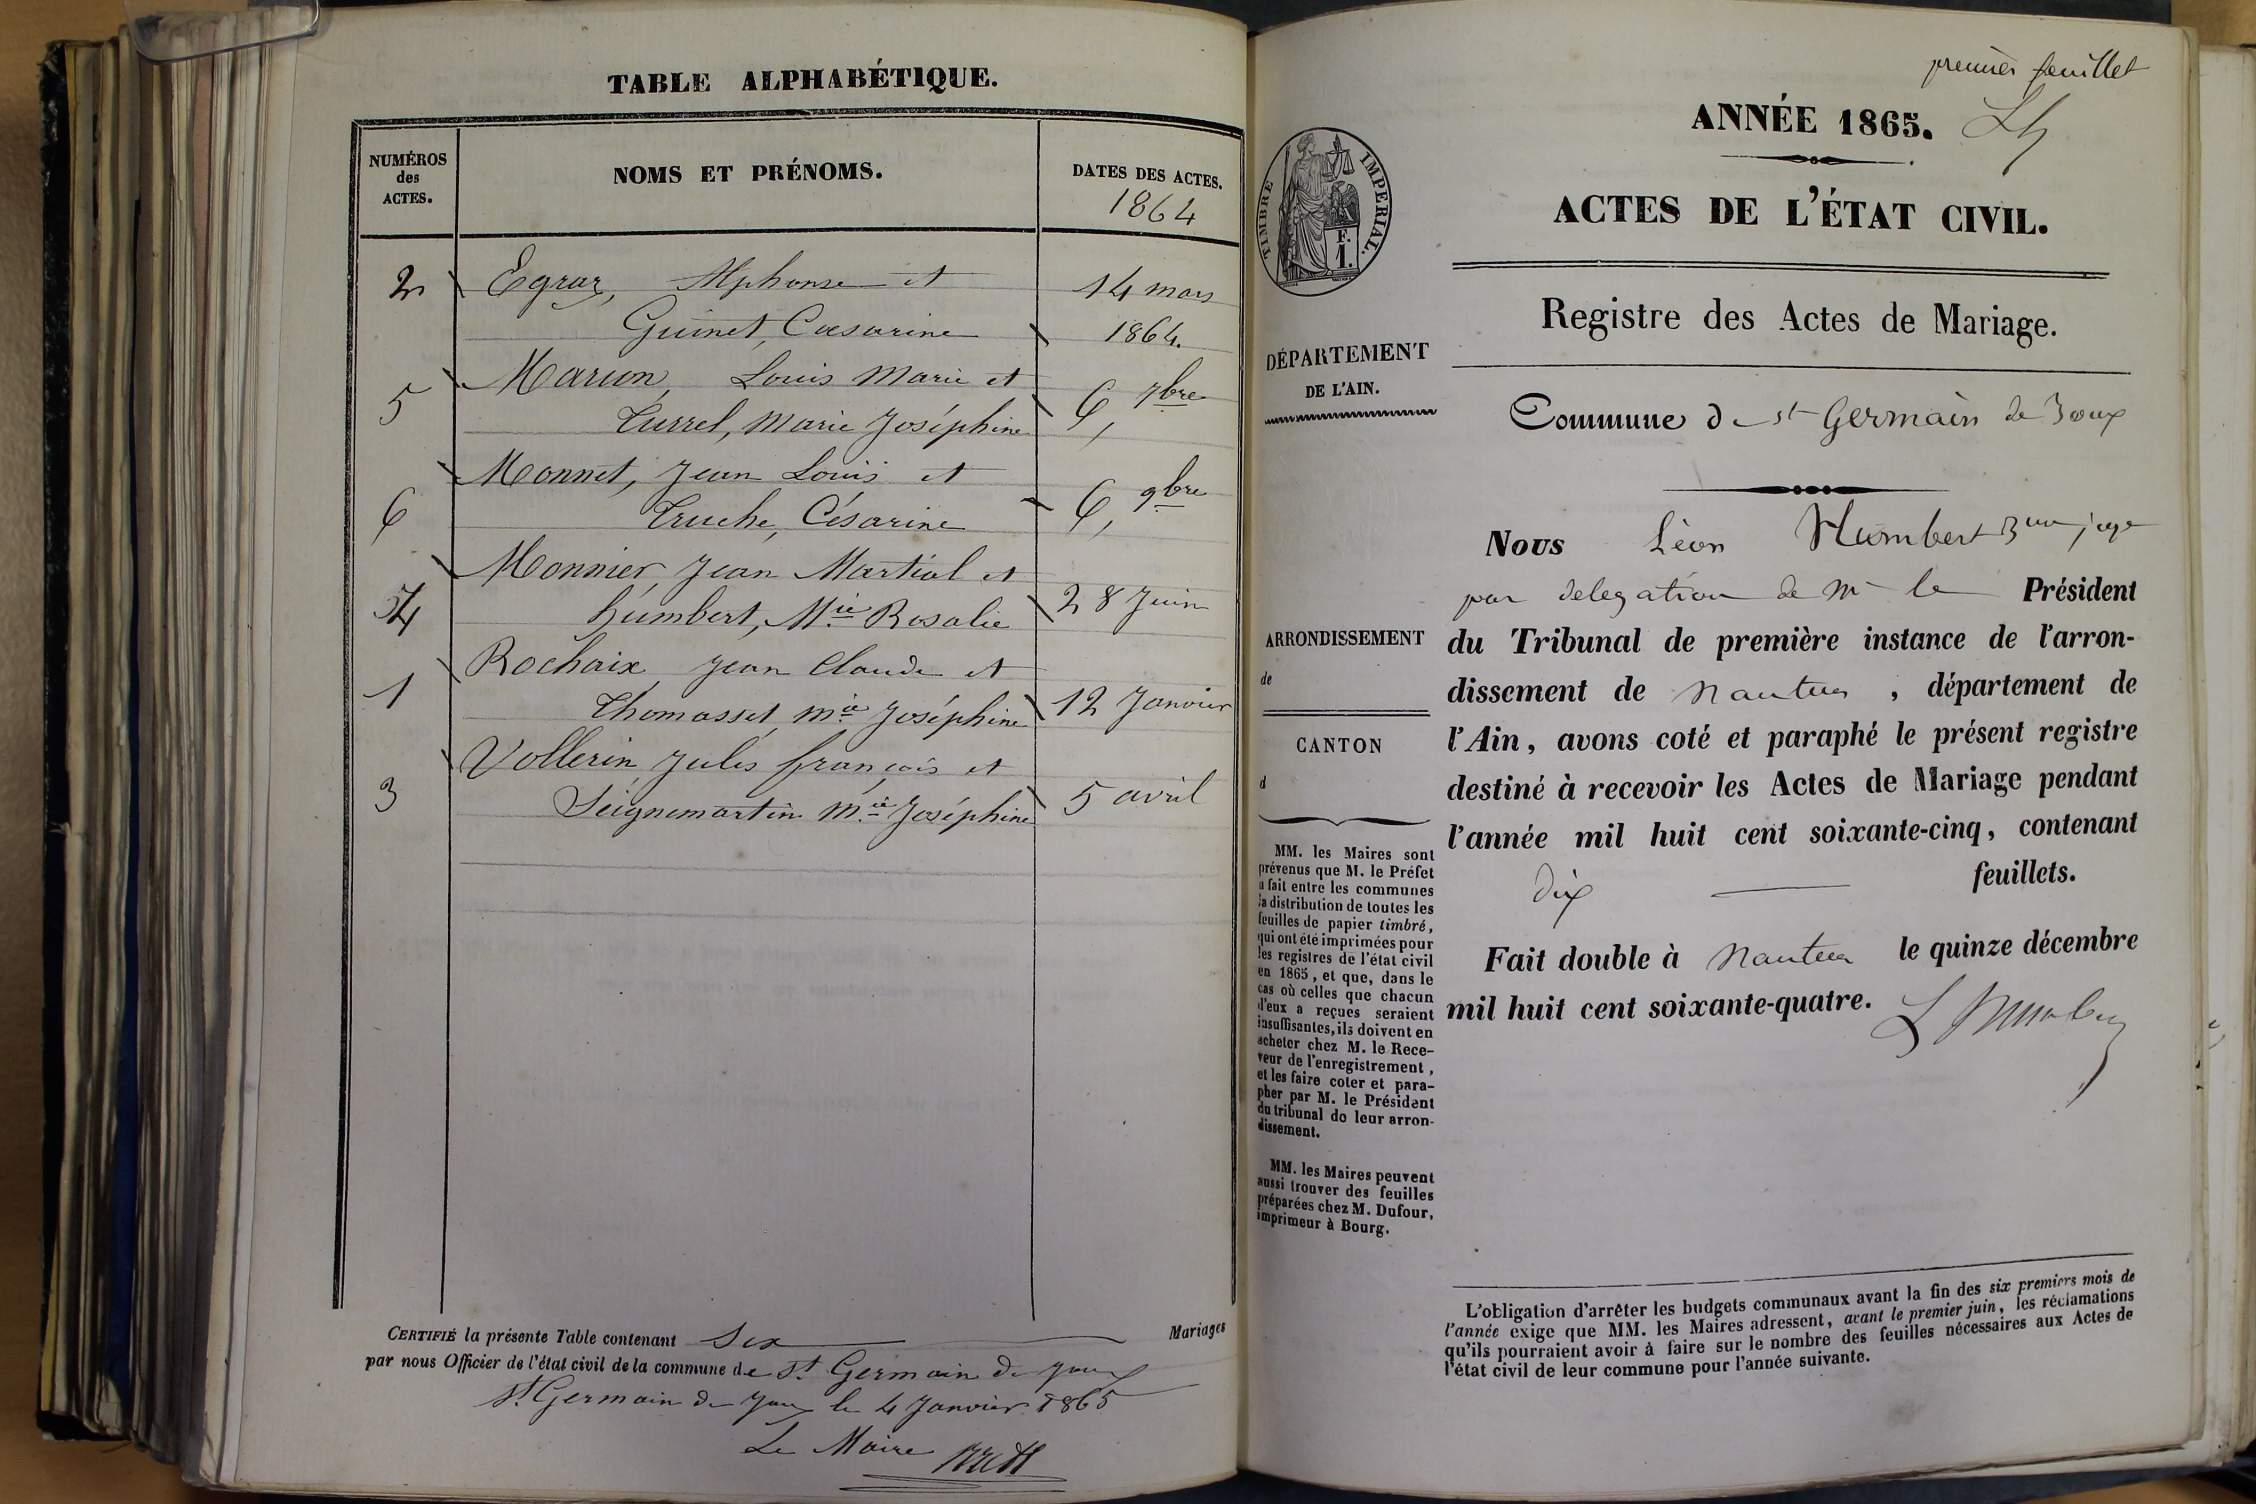 TABLE ALPHABÉTIQUE.
NUMÉROS
des
ACTES.
NOMS ET PRÉNOMS.
DATES DES ACTES.
1864
2 Egraz, Alphonse et 14 mars
Guinet, Cæsarine 1864.
5 Marion, Louis Marie et 6, 7bre
Turrel, Marie Joséphine
6 Monnet, Jean Louis et 6, 9bre
Truche, Césarine
4 Monnier, Jean Martial et 28 Juin
humbert, Mie Rosalie
1 Rochaix Jean Claude et 12 Janvier
Thomasset, mie Joséphine
3 Vollerin Jules françois et 5 avril
Seignemartin mie Joséphine
CERTIFIÉ la présente Table contenant six Mariages
par nous Officier de l'état civil de la commune de St Germain de Joux
St Germain de Joux le 4 Janvier 1865
Le Maire
premier feuillet
ANNÉE 1865. Lh
ACTES DE L'ÉTAT CIVIL.
TIMBRE IMPERIAL.
F.
1.
Registre des Actes de Mariage.
DÉPARTEMENT
DE L'AIN.
Commune de st Germain de Joux
Nous Léon Humbert juge
par delegation de Mr le Président
du Tribunal de première instance de l'arron-
dissement de Nantua, département de
l'Ain, avons coté et paraphé le présent registre
destiné à recevoir les Actes de Mariage pendant
l'année mil huit cent soixante-cinq, contenant
dix feuillets.
Fait double à Nantua le quinze décembre
mil huit cent soixante-quatre.
L Humbert
ARRONDISSEMENT
de
CANTON
d
MM. les Maires sont
prévenus que M. le Préfet
a fait entre les communes
la distribution de toutes les
feuilles de papier timbré,
qui ont été imprimées pour
les registres de l'état civil
en 1865, et que, dans le
cas où celles que chacun
d'eux a reçues seraient
insuffisantes, ils doivent en
acheter chez M. le Rece-
veur de l'enregistrement,
et les faire coter et para-
pher par M. le Président
du tribunal de leur arron-
dissement.
MM. les Maires peuvent
aussi trouver des feuilles
préparées chez M. Dufour,
imprimeur à Bourg.
L'obligation d'arrêter les budgets communaux avant la fin des six premiers mois de
l'année exige que MM. les Maires adressent, avant le premier juin, les réclamations
qu'ils pourraient avoir à faire sur le nombre des feuilles nécessaires aux Actes de
l'état civil de leur commune pour l'année suivante.